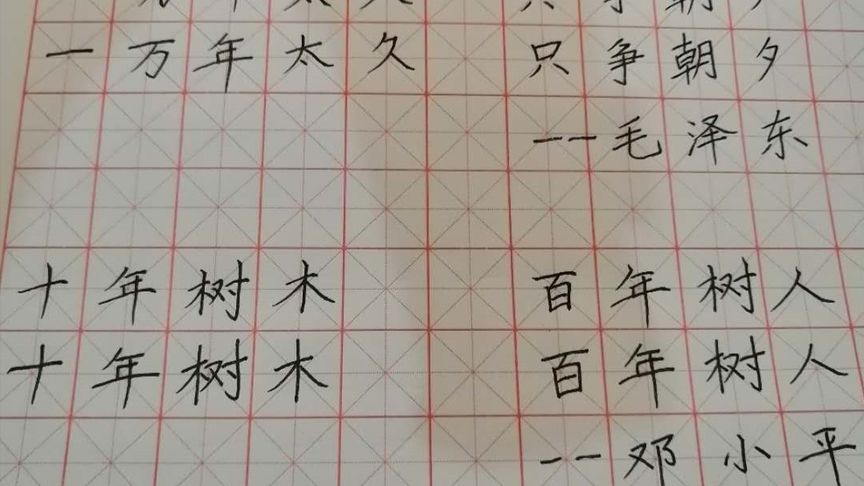 一万年太久 只争朝夕
--毛泽东
十年树木 百年树人
十年树木 百年树人
--邓小平